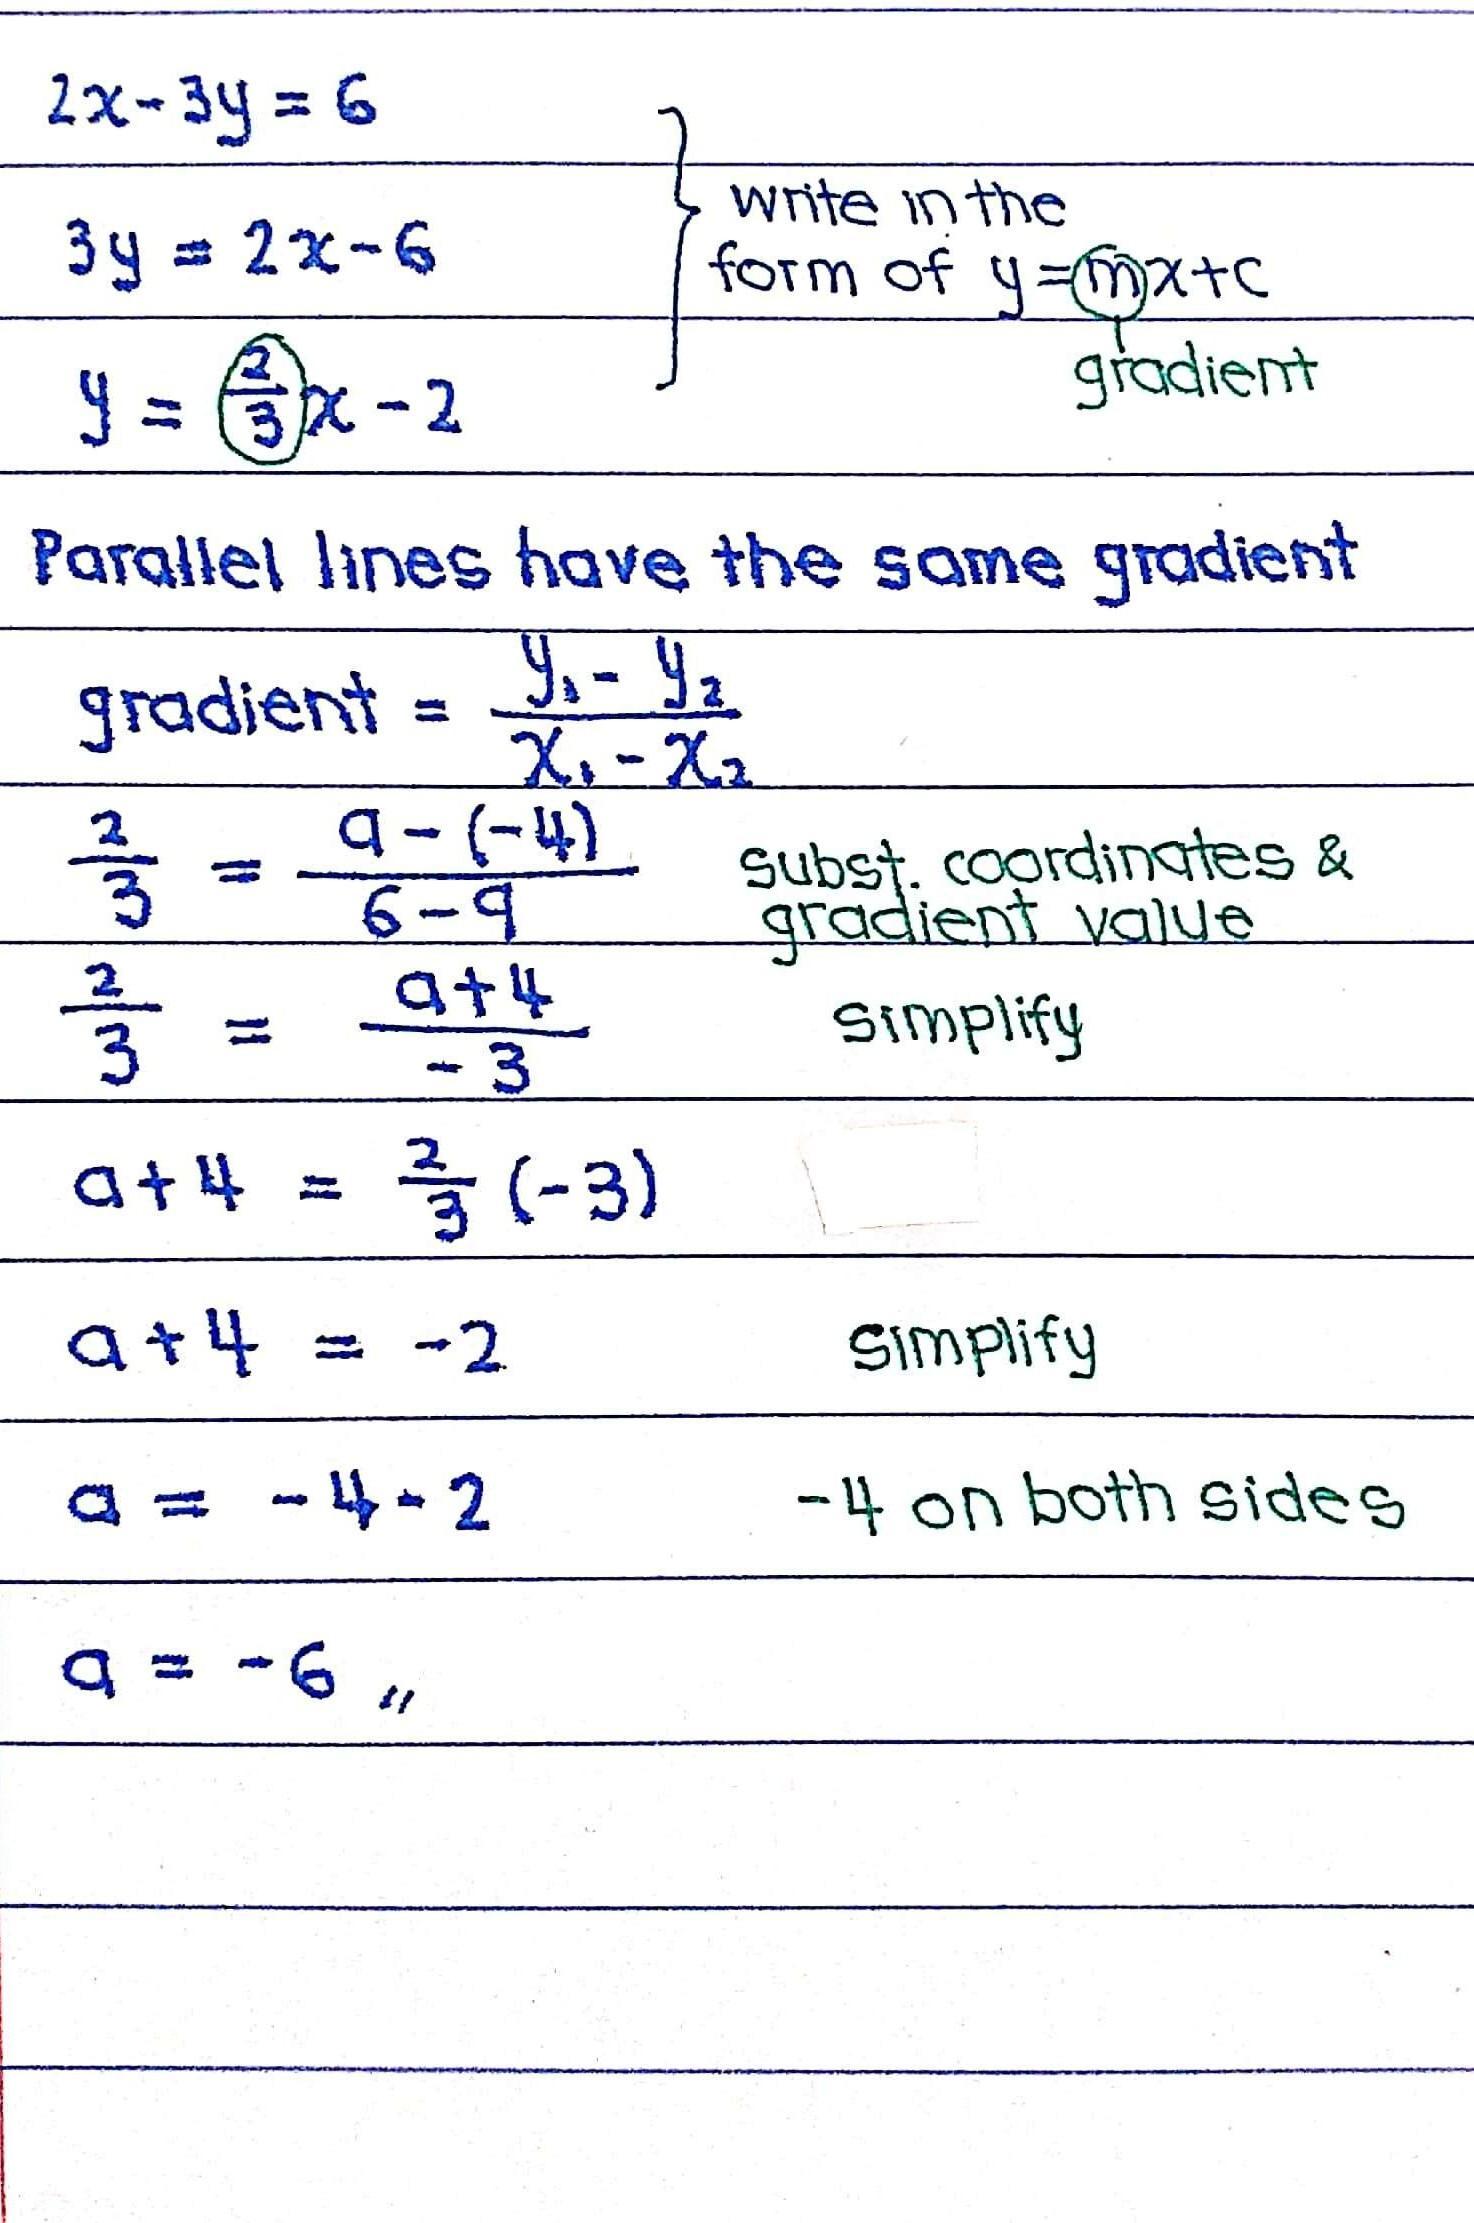 2x - 3y = 6
3y = 2x - 6
y = 2/3 x - 2
write in the
form of y = mx + c
gradient
Parallel lines have the same gradient
gradient = y₁ - y₂ / x₁ - x₂
2/3 = a - (-4) / 6 - 9 subst. coordinates &
gradient value
2/3 = a + 4 / -3 simplify
a + 4 = 2/3 (-3)
a + 4 = -2 simplify
a = -4 - 2 -4 on both sides
a = -6 ,,